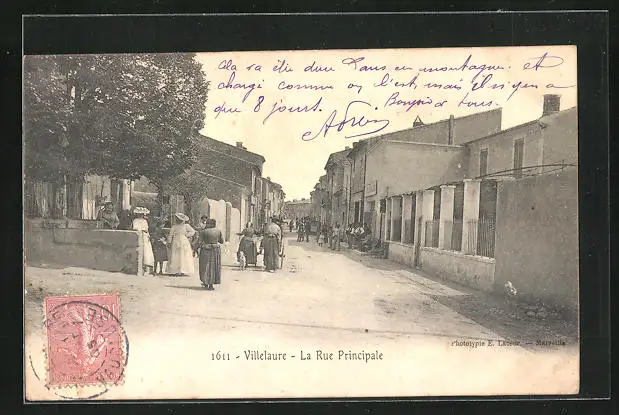 Cela va être dur dans en montagne et
chargé comme on l'est, mais il n'y en a
que 8 jours. Bonjour à tous
1611 - Villelaure - La Rue Principale
Phototypie E. Lacour. — Marseille